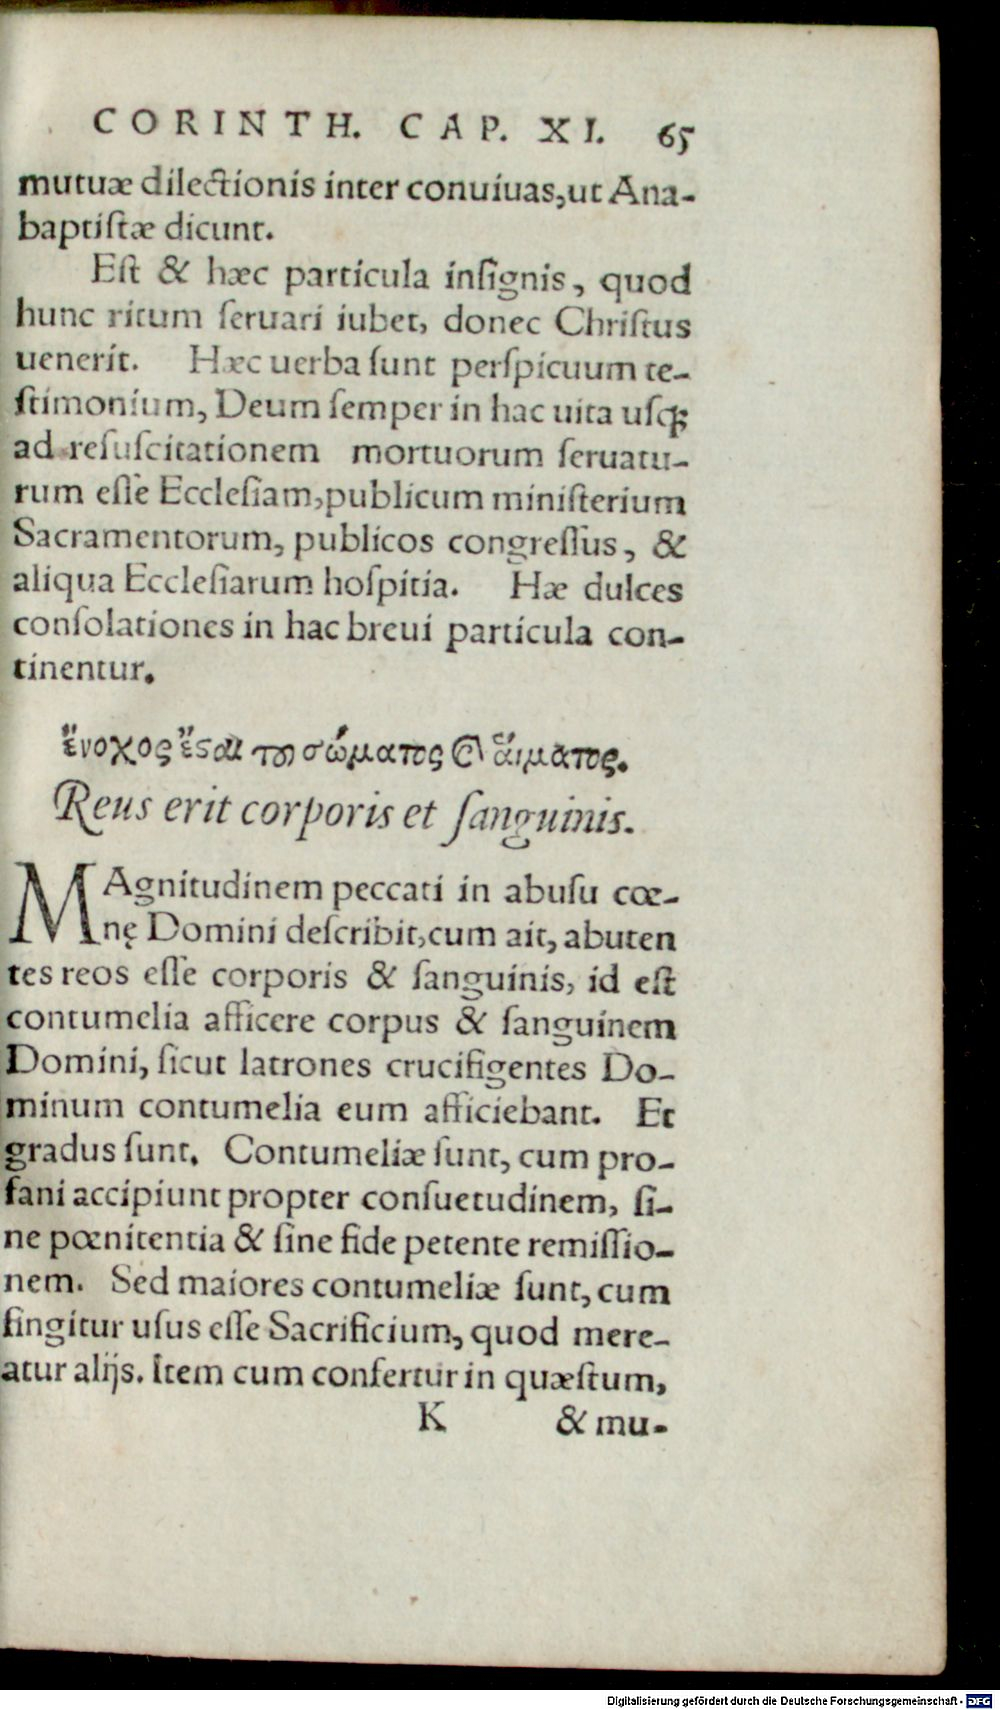 CORINTH. CAP. XI. 65
mutuæ dilectionis inter conuiuas, ut Ana-
baptiſtæ dicunt.
Eſt & hæc particula inſignis, quod
hunc ritum ſeruari iubet, donec Chriſtus
uenerit. Hæc uerba ſunt perſpicuum te-
ſtimonium, Deum ſemper in hac uita uſq;
ad reſuſcitationem mortuorum ſeruatu-
rum eſſe Eccleſiam, publicum miniſterium
Sacramentorum, publicos congreſſus, &
aliqua Eccleſiarum hoſpitia. Hæ dulces
conſolationes in hac breui particula con-
tinentur.
ἔνοχος ἔϛαι τοῦ σώματος καὶ αἵματος.
Reus erit corporis et ſanguinis.
MAgnitudinem peccati in abuſu cœ-
nę Domini deſcribit, cum ait, abuten
tes reos eſſe corporis & ſanguinis, id eſt
contumelia afficere corpus & ſanguinem
Domini, ſicut latrones crucifigentes Do-
minum contumelia eum afficiebant. Et
gradus ſunt. Contumeliæ ſunt, cum pro-
fani accipiunt propter conſuetudinem, ſi-
ne pœnitentia & ſine fide petente remiſſio-
nem. Sed maiores contumeliæ ſunt, cum
fingitur uſus eſſe Sacrificium, quod mere-
atur alijs. Item cum confertur in quæſtum,
K & mu-
Digitalisierung gefördert durch die Deutsche Forschungsgemeinschaft - DFG